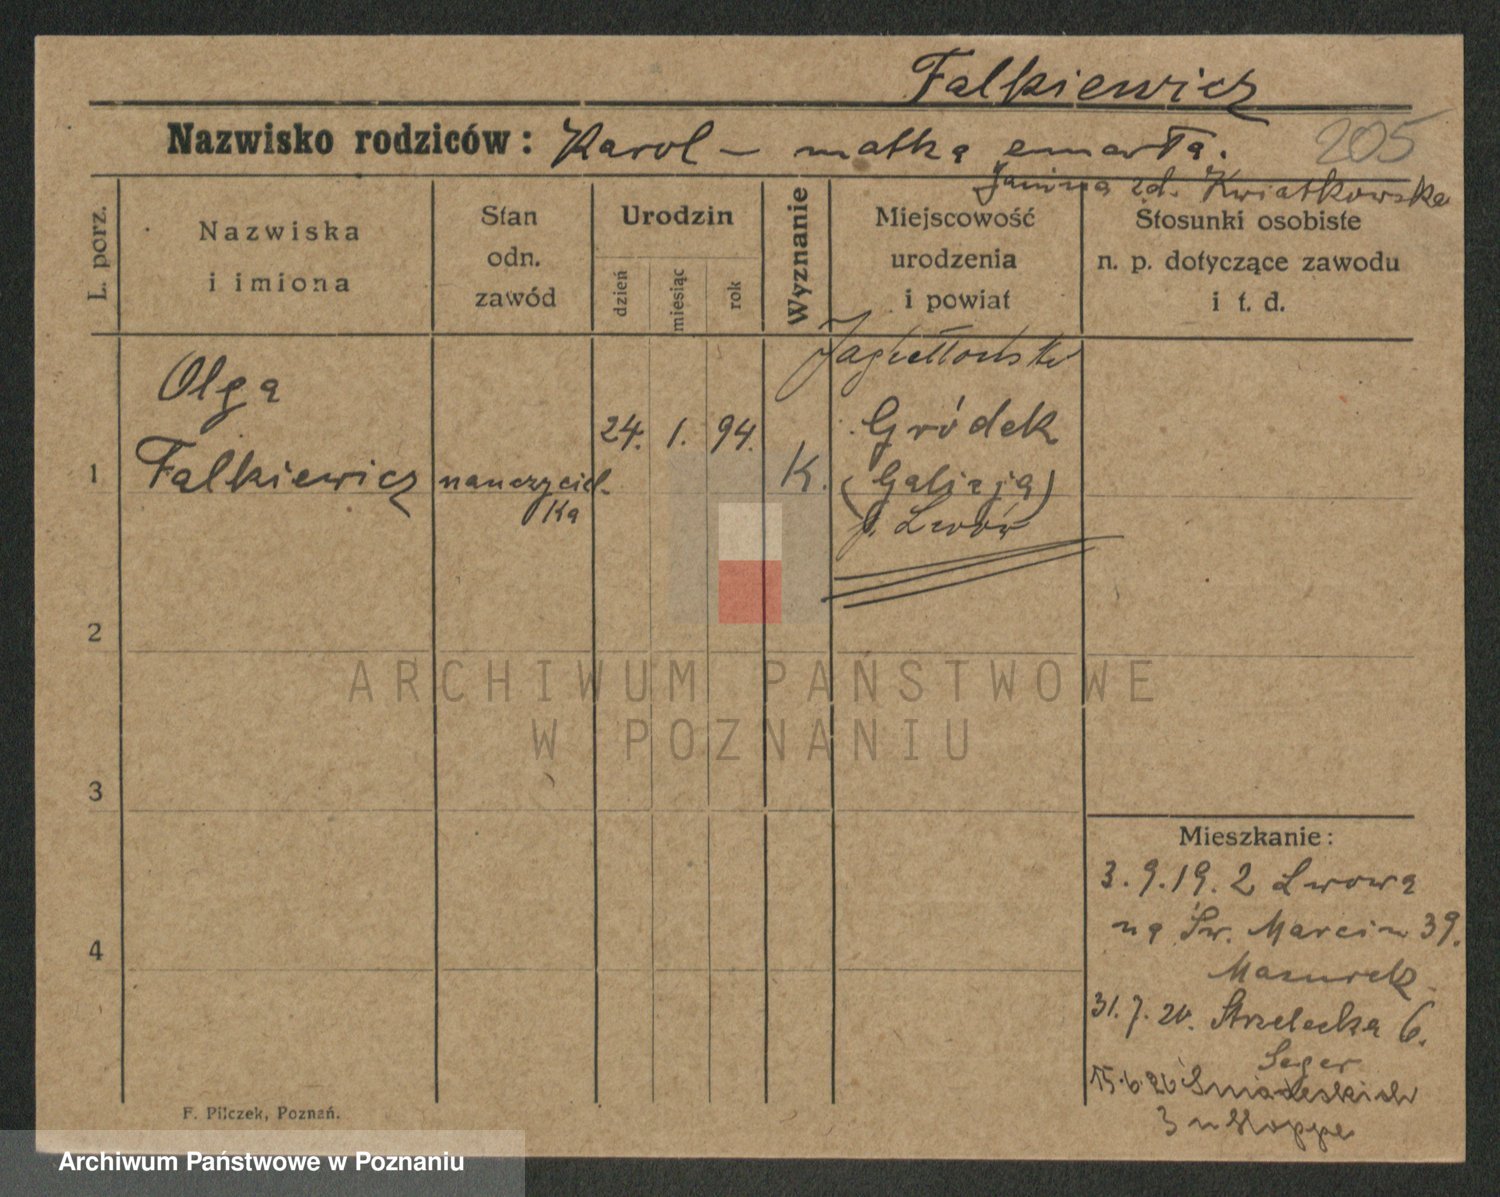 Falkiewicz
Nazwisko rodziców: Karol – matka emarła.
205
Janina zd. Kwiatkowska
L. porz.
Nazwiska
i imiona
Stan
odn.
zawód
Urodzin
dzień
miesiąc
rok
Wyznanie
Miejscowość
urodzenia
i powiat
Stosunki osobiste
n. p. dotyczące zawodu
i t. d.
1
Olga
Falkiewicz
nauczyciel-
ka
24. 1. 94.
K.
Jagielloński
Gródek
(Galicja)
p. Lwów
2
3
4
Mieszkanie:
3.9.19. z Lwowa
na Św. Marcin 39.
Mazurek
31.7.20. Strzelecka 6.
Seger
15.6.20 Śniadeckich
3 u Hoppe
F. Pilczek, Poznań.
ARCHIWUM PAŃSTWOWE
W POZNANIU
Archiwum Państwowe w Poznaniu